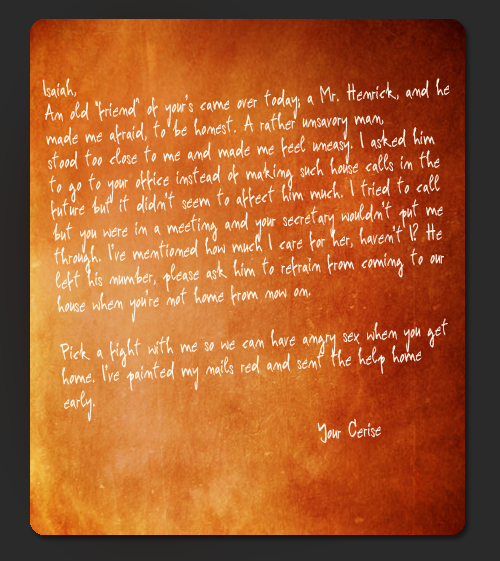 Isaiah,
An old "friend" of your's came over today; a Mr. Henrick, and he
made me afraid, to be honest. A rather unsavory man,
stood too close to me and made me feel uneasy. I asked him
to go to your office instead of making such house calls in the
future but it didn't seem to affect him much. I tried to call
but you were in a meeting and your secretary wouldn't put me
through. I've mentioned how much I care for her, haven't I? He
left his number, please ask him to refrain from coming to our
house when you're not home from now on.

Pick a fight with me so we can have angry sex when you get
home. I've painted my nails red and sent the help home
early.
Your Cerise